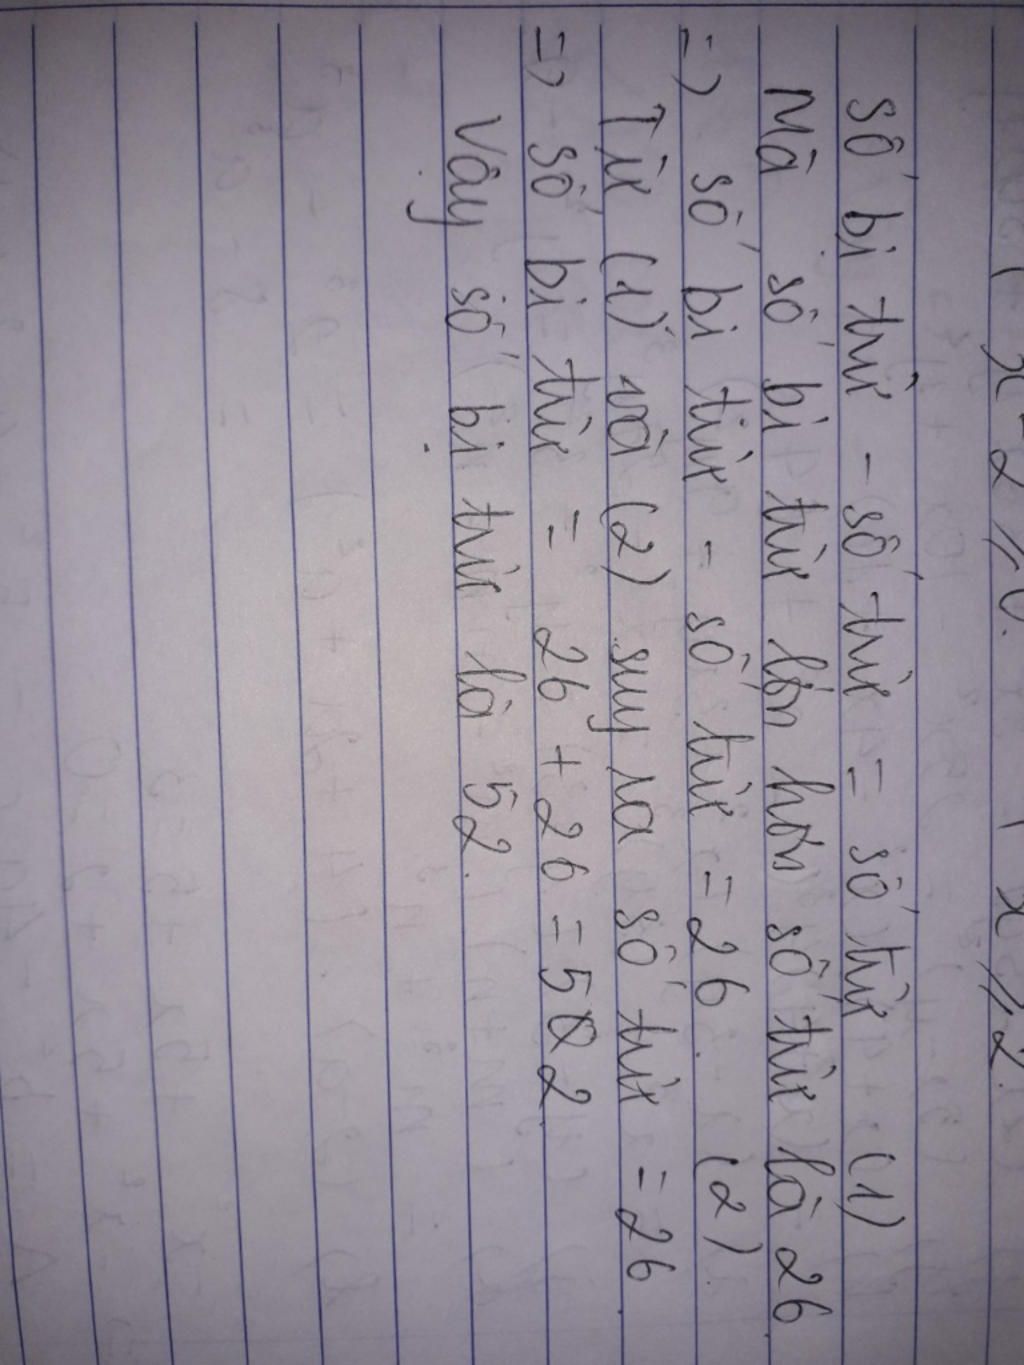 x - 2 ≥ 0. x ≥ 2.
số bị trừ - số trừ = số trừ (1)
Mà số bị trừ lớn hơn số trừ là 26
=> số bị trừ - số trừ = 26 (2)
Từ (1) và (2) suy ra số trừ = 26
=> số bị trừ = 26 + 26 = 52
Vậy số bị trừ là 52.